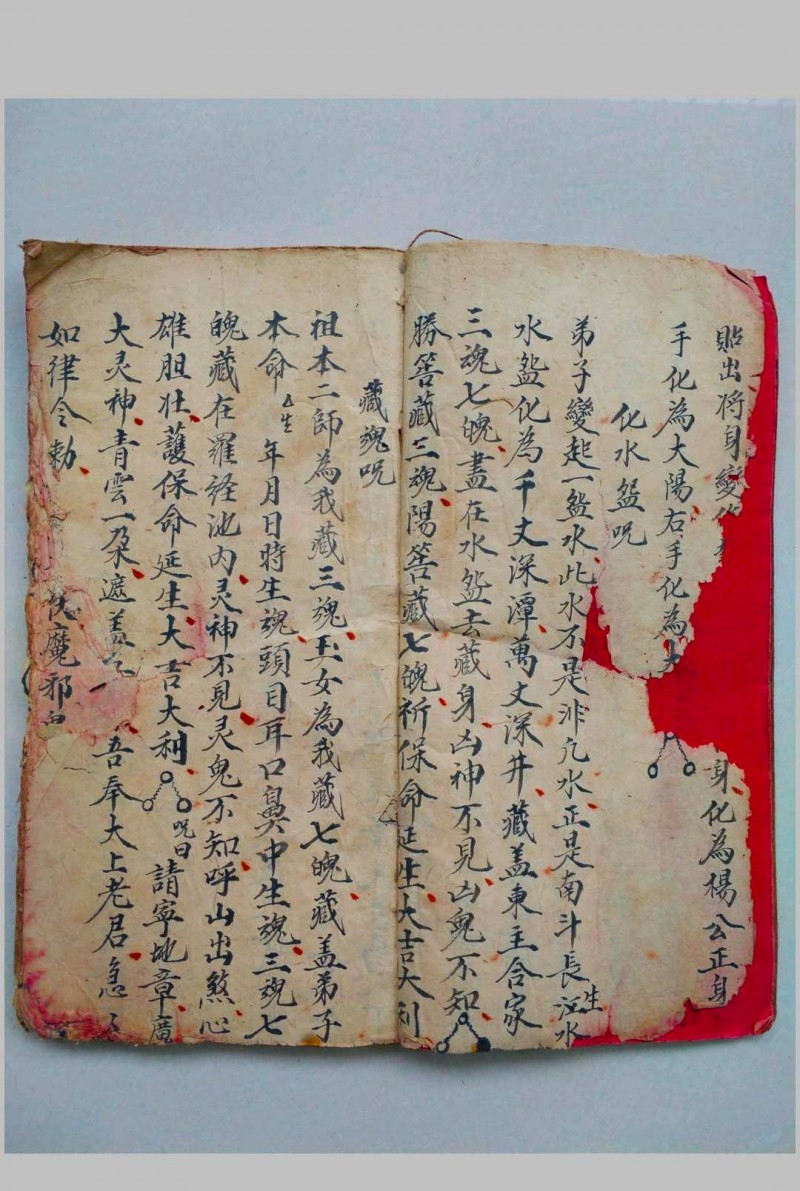 貼出将身變
手化為大陽右手化為 身化為楊公正身
化水盌咒
弟子變起一盌水此水不是非凢水正是南斗長生江水
水盌化為千丈深潭萬丈深井藏盖東主合家
三魂七魄盡在水盌去藏身凶神不見凶鬼不知
勝筶藏三魂陽筶藏七魄祈保命延生大吉大利
藏魂咒
祖本二師為我藏三魂玉女為我藏七魄藏盖弟子
本命厶生年月日時生魂頭目耳口鼻中生魂三魂七
魄藏在羅経池内灵神不見灵鬼不知呼山出煞心
雄胆壮護保命延生大吉大利 咒曰 請寧地章廣
大灵神青雲一朶遮盖 吾奉大上老君急〻
如律令勅 伏魔邪